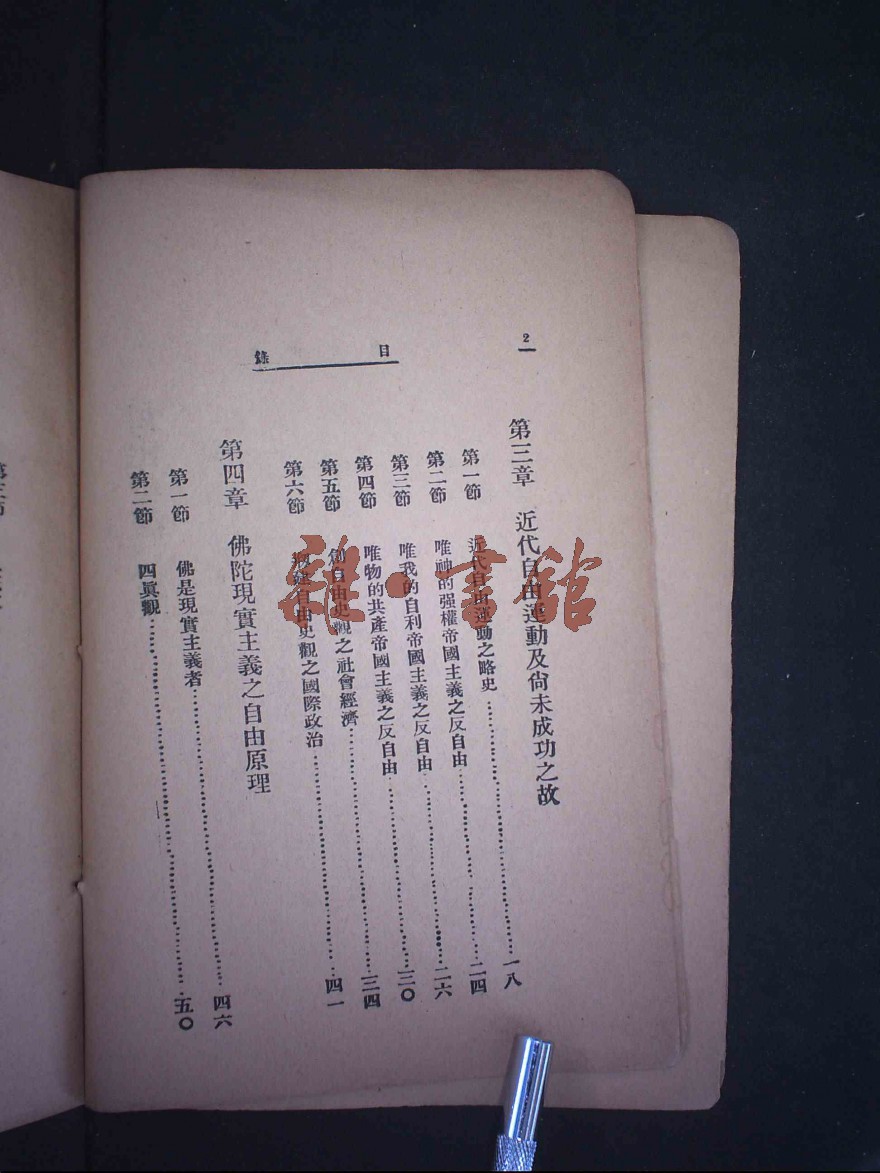 2
目錄
第三章 近代自由運動及尙未成功之故
第一節 近代自由運動之略史……一八
第二節 唯神的强權帝國主義之反自由……二四
第三節 唯我的自利帝國主義之反自由……二六
第四節 唯物的共產帝國主義之反自由……三〇
第五節 創自由史觀之社會經濟……三四
第六節 建自由史觀之國際政治……四一
第四章 佛陀現實主義之自由原理
第一節 佛是現實主義者……四六
第二節 四眞觀……五〇
雜·書館